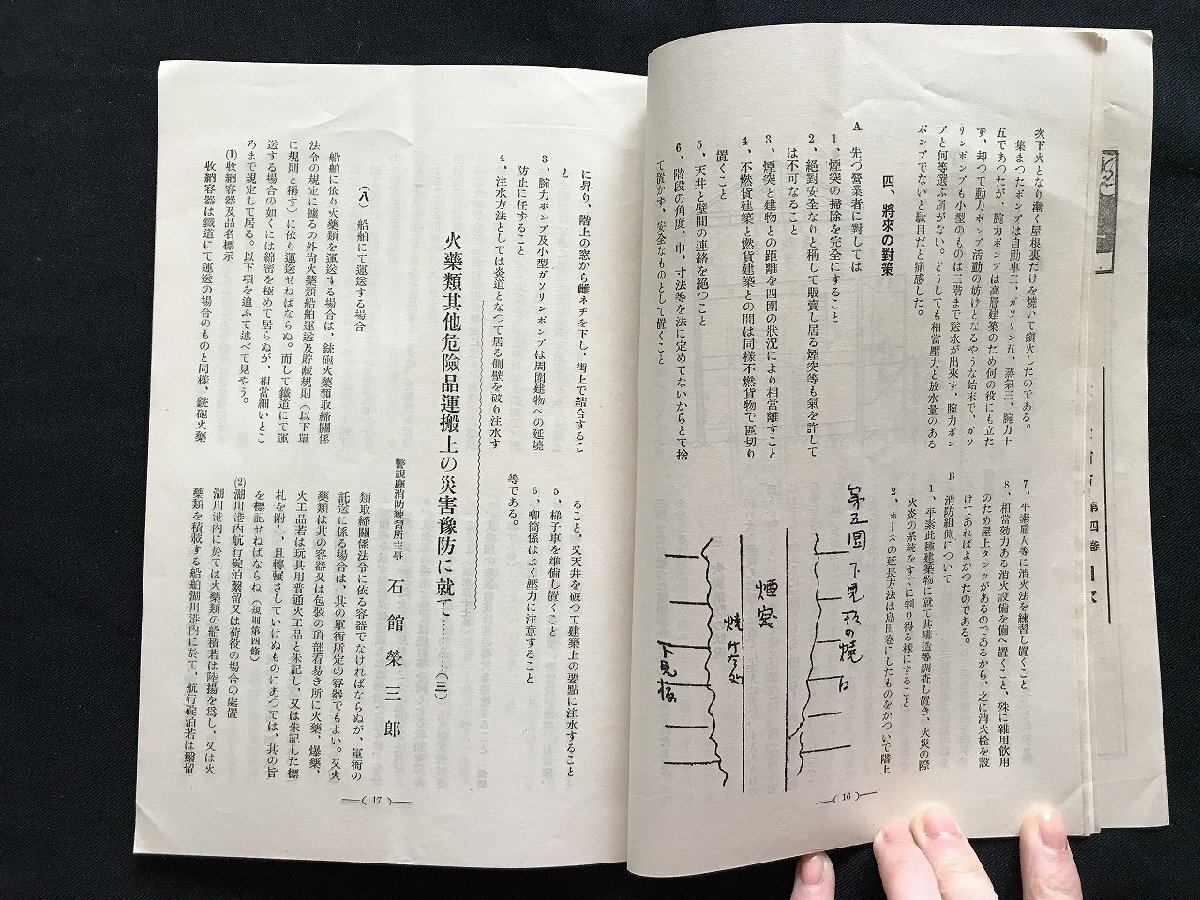 次下火となり漸く屋根裏だけを焼いて鎭火したのである。
集まつたポンプは自動車二、ガソリン五、蒸汽三、腕力十
五であつたが、腕力ポンプは高層建築のため何の役にも立た
ず、却つて動力ポンプ活動の妨げとなるやうな始末で、ガソ
リンポンプでも小型のものは三階まで送水が出來ず、腕力ポン
プと何等選ぶ所がない。どうしても相當壓力と放水量のある
ポンプでないと駄目だと痛感した。
四、將來の對策
A 先づ營業者に對しては
1、煙突の掃除を完全にすること
2、絕對安全なりと稱して販賣し居る煙突等も氣を許して
は不可なること
3、煙突と建物との距離を四圍の狀況により相當離すこと
4、不燃貨建築と燃貨建築との間は同樣不燃貨物で區切り
置くこと
5、天井と壁間の連絡を絕つこと
6、階段の角度、巾、寸法等を法に定めてないからとて捨
て置かず、安全なものとして置くこと
7、平素雇人等に消火法を練習し置くこと
8、相當効力ある消火設備を備へ置くこと、殊に雜用飮用
のため屋上タンクがあるのであるから、之に消火栓を設
けてあればよかつたのである。
B 消防組側について
1、平素此種建築物に就て其構造等調査し置き、火災の際
火炎の系統をすぐに判り得る樣にすること
2、ホースの延長方法は島田卷にしたものをかついで階上
第五圖 下見板の燒け
煙突
下見板
—( 16 )—
に昇り、階上の窓から雌ネヂを下し、街上で結合するこ
と
3、腕力ポンプ及小型ガソリンポンプは周圍建物への延燒
防止に任ずること
4、注水方法としては炎道となつて居る側壁を破り注水す
ること、又天井を破つて建築上の要點に注水すること
5、梯子車を準備し置くこと
6、喞筒係はよく壓力に注意すること
等である。
火藥類其他危險品運搬上の災害豫防に就て……(三)
警視廳消防練習所主事 石館榮三郎
(八) 船舶にて運送する場合
船舶に依り火藥類を運送する場合は、銃砲火藥類取締關係
法令の規定に據るの外尙火藥類船舶運送及貯藏規則(以下單
に規則と稱す)に依り運送せねばならぬ。而して鐵道にて運
送する場合の如くには綿密を極めて居らぬが、相當細いとこ
ろまで規定して居る。以下項を追ふて述べて見やう。
(1)收納容器及品名標示
收納容器は鐵道にて運送の場合のものと同樣、銃砲火藥
類取締關係法令に依る容器でなければならぬが、軍衙の
託送に係る場合は、其の軍衙所定の容器でもよい。又火
藥類は其の容器又は包裝の頂部看易き所に火藥、爆藥、
火工品若は玩具用普通火工品と朱記し、又は朱記した標
札を附し、且轉輾さしていけぬものにあつては、其の旨
を標記せねばならぬ(規則第四條)
(2)湖川港內航行碇泊繫留又は荷役の場合の處置
湖川港內に於ては火藥類の船積若は陸揚を爲し、又は火
藥類を積載する船舶湖川港內に於て、航行碇泊若は繫留
—( 17 )—
第四卷